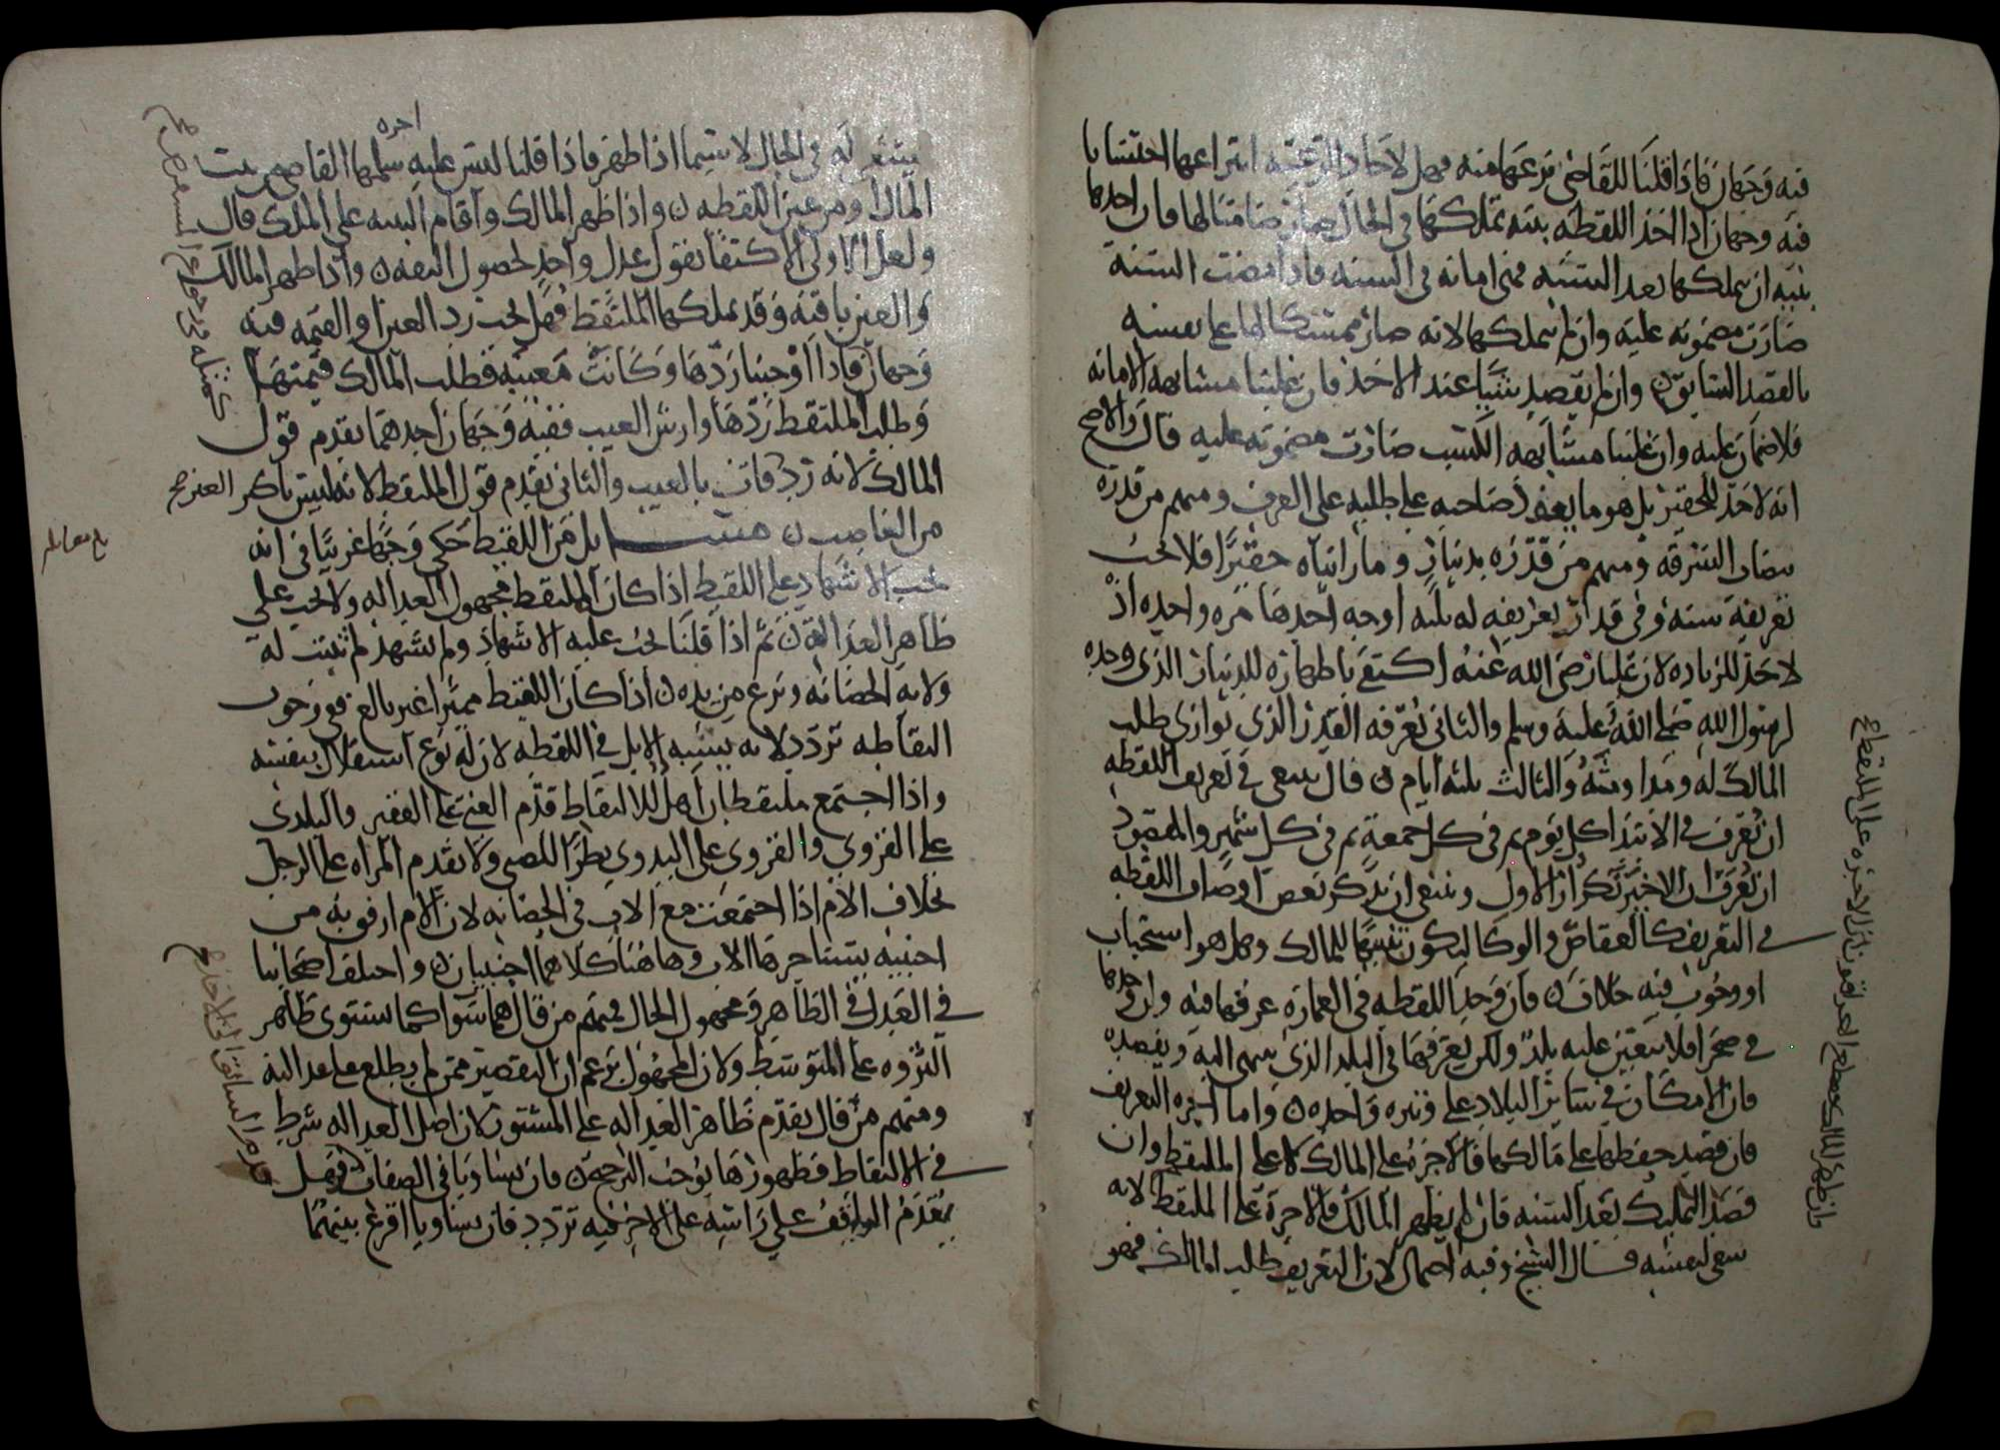 فيه وجهان فاذا قلنا للقاضي نزعها منه فهل لاحاد الرعية انتزاعها احتسابا
فيه وجهان اذا اخذ اللقطه بنيه تملكها في الحال صار ضامنا لها فان اخدها
بنيه ان يملكها بعد السنه فهي امانه في السنه فاذا مضت السنة
صارت مضمونه عليه وان لم يملكها لانه صار ممسكا لها على نفسه
بالقصد السابق وان لم يقصد شيا عند الاخذ فان غلبنا مشابهه الامانه
فلا ضمان عليه وان غلبنا مشابهه الكسب صارت مضمونه عليه قال والاصح
انه لا حد للحقير بل هو ما يعد صاحبه على طلبه على العرف ومنهم من قدره
بنصاب السرقه ومنهم من قدره بدينار وما رايناه حقيرا فلا يجب
تعريفه سنه وفي قدر تعريفه له ثلثه اوجه احدها مره واحده اذ
لا حد للزياده لان عليا رضي الله عنه اكتفى باظهاره للدينار الذي وجده
لرسول الله صلى الله عليه وسلم والثاني يعرفه القدر الذي يوازي طلب
المالك له ومداومته والثالث ثلثه ايام قال ينبغي في تعريف اللقطه
ان يعرف في الابتدا كل يوم ثم في كل جمعة ثم في كل شهر والمقصود
ان يعرف ان الاخير تكرار الاول وينبغي ان يذكر بعض اوصاف اللقطه
في التعريف كالعفاص والوكا ليكون تنبيها للمالك وهل هو استحباب
او وجوب فيه خلاف فان وجد اللقطه في العماره عرفها فيه وان وجدها
في صحرا فلا يتعين عليه بلد ولكن يعرفها في البلد الذي ينتهي اليه ويقصده
فان الامكان في سائر البلاد على وتيره واحده واما اجره التعريف
فان قصد حفظها على مالكها فالاجره على المالك لا على الملتقط وان
قصد التمليك بعد السنه فان لم يظهر المالك فالاجرة على الملتقط لانه
سعى لنفسه قال الشيخ وفيه احتمال لان التعريف طلب المالك فهو
اجره
في الحال لا سيما اذا ظهر فاذا قلنا ليس عليه سلمها القاضي من بيت
المال او من عين اللقطه واذا ظهر المالك واقام البينه على الملك قال
ولعل الاولى الاكتفا بقول عدل واحد لحصول الثقه واذا ظهر المالك
والعين باقيه وقد تملكها الملتقط فهل يجب رد العين او القيمه فيه
وجهان فاذا اوجبنا ردها وكانت معيبه فطلب المالك قيمتها
وطلب الملتقط ردها وارش العيب ففيه وجهان احدهما يقدم قول
المالك لانه رد فات بالعيب والثاني يقدم قول الملتقط لانه ليس باكثر
من الغاصب مسايل من اللقيط حكى وجها غريبا في انه
يجب الاشهاد على اللقيط اذا كان الملتقط مجهول العداله ولا يجب على
ظاهر العداله ثم اذا قلنا يجب عليه الاشهاد ولم يشهد لم تثبت له
ولايه الحضانه ونزع من يده اذا كان اللقيط مميزا غير بالغ ففي وجوب
التقاطه تردد لانه يشبه الابل في اللقطه لان له نوع استقلال بنفسه
واذا اجتمع ملتقطان اهل للالتقاط قدم الغني على الفقير والبلدي
على القروي والقروي على البدوي نظرا للصبي ولا تقدم المراه على الرجل
بخلاف الام اذا اجتمعت مع الاب في الحضانه لان الام ارفق به من
اجنبيه يستاجرها الاب وهاهنا كلاهما اجنبيان واختلف اصحابنا
في العدل في الظاهر ومجهول الحال فمنهم من قال هما سوا كما يستوي ظاهر
الثروه على المتوسط ولان المجهول يزعم ان التقصير ممن لم يطلع على عدالته
ومنهم من قال يقدم ظاهر العداله على المستور لان اصل العداله شرط
في الالتقاط فظهورها يوجب الترجيح فان تساويا في الصفات فهل
يقدم الواقف على راسه على الاخر فيه تردد فان تساويا اقرع بينهما